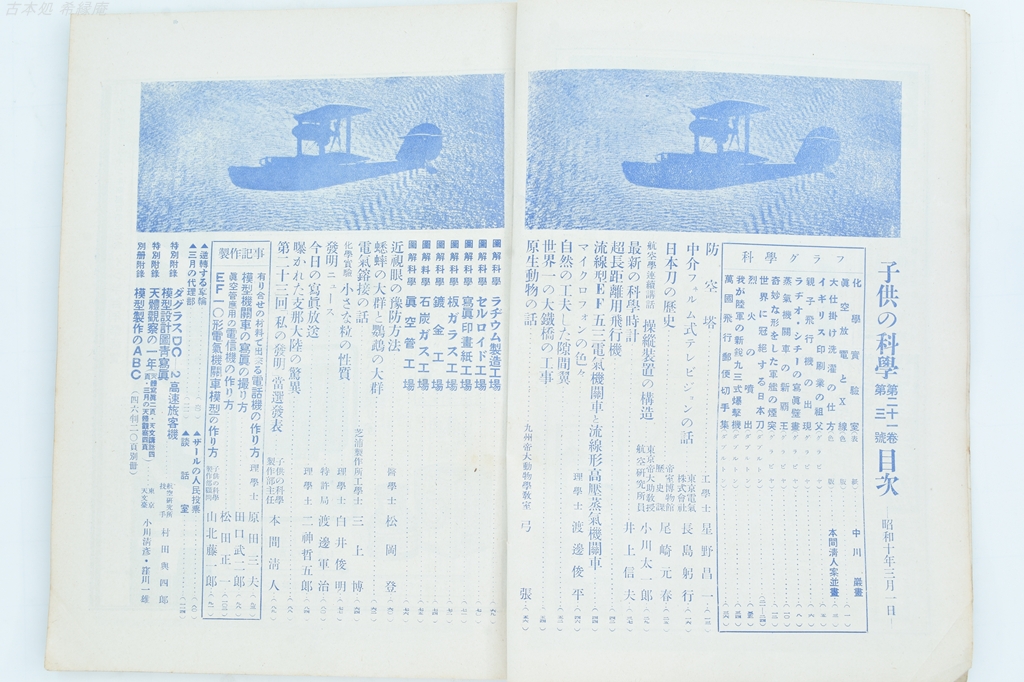 古本処 希縁庵
子供の科學 第二十一卷 第三號 目次
―昭和十年三月一日―
科學グラフ
化學實驗室
中川巖畫
眞空放電とX線
大仕掛け洗濯の仕方
本間淸人案並畫
イギリス印刷業の祖
親子飛行機の出現
ラヂオ・シチーの寫眞壁畫
蒸氣機關車の新覇王
奇妙な形をした軍艦の煙突
世界に冠絕する日本刀
烈火の噴出
我が陸軍の新銳九三式爆擊機
萬國飛行郵便切手集
防空塔 工學士 星野昌一
中介フィルム式テレビジョンの話 東京電氣株式會社 長島躬行
日本刀の歷史 帝室博物館歷史課 尾崎元春
航空學連續講話 操縱裝置の構造 東京帝大助敎授航空硏究所員 小川太一郎
最新の科學時計 井上信夫
超長距離用飛行機
流線型EF五三電氣機關車と流線形高壓蒸氣機關車
マイクロフォンの色々 理學士 渡邊俊平
自然の工夫した隙間翼
世界一の大鐵橋の工事
原生動物の話 九州帝大動物學敎室 弓張
圖解科學 ラヂウム製造工場
圖解科學 セルロイド工場
圖解科學 寫眞印畫紙工場
圖解科學 板ガラス工場
圖解科學 鍍金工場
圖解科學 石炭ガス工場
圖解科學 眞空管工場
近視眼の豫防方法 醫學士 松岡登
蟋蟀の大群と鸚鵡の大群
電氣鎔接の話 芝浦製作所工學士 三上博
化學實驗 小さな粒の性質 理學士 白井俊明
發明ニュース 特許局 渡邊軍治
今日の寫眞放送 理學士 二神哲五郎
曝かれた支那大陸の驚異
第二十三回「私の發明」當選發表 子供の科學製作部主任 本間淸人
製作記事
有り合せの材料で出來る電話機の作り方 理學士 原田三夫
模型機關車の寫眞の撮り方 田口武二郎
眞空管應用の電信機の作り方 松田正一
EF一〇形電氣機關車模型の作り方 子供の科學製作部顧問 山北藤一郎
▲逆轉する車輪
▲ザールの人民投票
▲三月の代理部
▲談話室
特別附錄 ダグラスDC-2高速旅客機模型設計圖靑寫眞 航空硏究所技手 村田與四郎
特別附錄 天體觀察の一年 東京天文臺 小川淸彥・窪川一雄
別册附錄 模型製作のABC(四六判二〇頁別册)